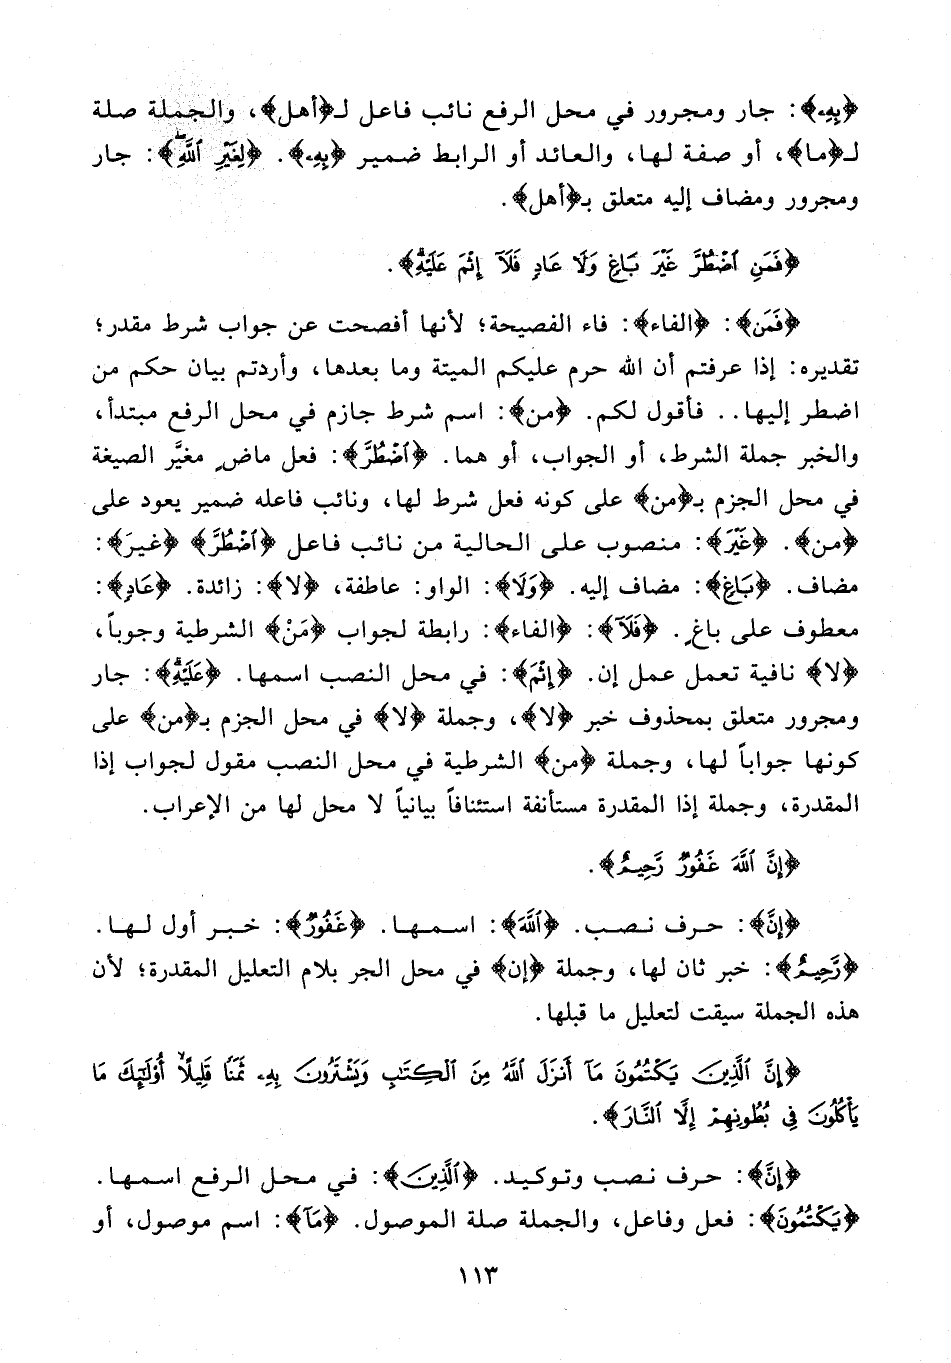 ﴿بِهِۦ﴾: جار ومجرور في محل الرفع نائب فاعل لـ﴿أهل﴾، والجملة صلة
لـ﴿ما﴾، أو صفة لها، والعائد أو الرابط ضمير ﴿بِهِۦ﴾. ﴿لِغَيْرِ ٱللَّهِ﴾: جار
ومجرور ومضاف إليه متعلق بـ﴿أهل﴾.
﴿فَمَنِ ٱضْطُرَّ غَيْرَ بَاغٍ وَلَا عَادٍ فَلَآ إِثْمَ عَلَيْهِۚ﴾.
﴿فَمَن﴾: ﴿الفاء﴾: فاء الفصيحة؛ لأنها أفصحت عن جواب شرط مقدر؛
تقديره: إذا عرفتم أن الله حرم عليكم الميتة وما بعدها، وأردتم بيان حكم من
اضطر إليها.. فأقول لكم. ﴿من﴾: اسم شرط جازم في محل الرفع مبتدأ،
والخبر جملة الشرط، أو الجواب، أو هما. ﴿ٱضْطُرَّ﴾: فعل ماضٍ مغيَّر الصيغة
في محل الجزم بـ﴿من﴾ على كونه فعل شرط لها، ونائب فاعله ضمير يعود على
﴿من﴾. ﴿غَيْرَ﴾: منصوب على الحالية من نائب فاعل ﴿ٱضْطُرَّ﴾ ﴿غيرَ﴾:
مضاف. ﴿بَاغٍ﴾: مضاف إليه. ﴿وَلَا﴾: الواو: عاطفة، ﴿لا﴾: زائدة. ﴿عَادٍ﴾:
معطوف على باغٍ. ﴿فَلَآ﴾: ﴿الفاء﴾: رابطة لجواب ﴿مَنْ﴾ الشرطية وجوباً،
﴿لا﴾ نافية تعمل عمل إن. ﴿إِثْمَ﴾: في محل النصب اسمها. ﴿عَلَيْهِۚ﴾: جار
ومجرور متعلق بمحذوف خبر ﴿لا﴾، وجملة ﴿لا﴾ في محل الجزم بـ﴿من﴾ على
كونها جواباً لها، وجملة ﴿من﴾ الشرطية في محل النصب مقول لجواب إذا
المقدرة، وجملة إذا المقدرة مستأنفة استئنافاً بيانياً لا محل لها من الإعراب.
﴿إِنَّ ٱللَّهَ غَفُورٌ رَّحِيمٌ﴾.
﴿إِنَّ﴾: حرف نصب. ﴿ٱللَّهَ﴾: اسمها. ﴿غَفُورٌ﴾: خبر أول لها.
﴿رَّحِيمٌ﴾: خبر ثان لها، وجملة ﴿إن﴾ في محل الجر بلام التعليل المقدرة؛ لأن
هذه الجملة سيقت لتعليل ما قبلها.
﴿إِنَّ ٱلَّذِينَ يَكْتُمُونَ مَآ أَنزَلَ ٱللَّهُ مِنَ ٱلْكِتَٰبِ وَيَشْتَرُونَ بِهِۦ ثَمَنًا قَلِيلًاۙ أُو۟لَٰٓئِكَ مَا
يَأْكُلُونَ فِى بُطُونِهِمْ إِلَّا ٱلنَّارَ﴾.
﴿إِنَّ﴾: حرف نصب وتوكيد. ﴿ٱلَّذِينَ﴾: في محل الرفع اسمها.
﴿يَكْتُمُونَ﴾: فعل وفاعل، والجملة صلة الموصول. ﴿مَآ﴾: اسم موصول، أو
١١٣